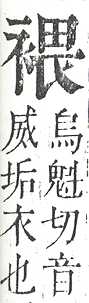 烏魁切音
威垢衣也